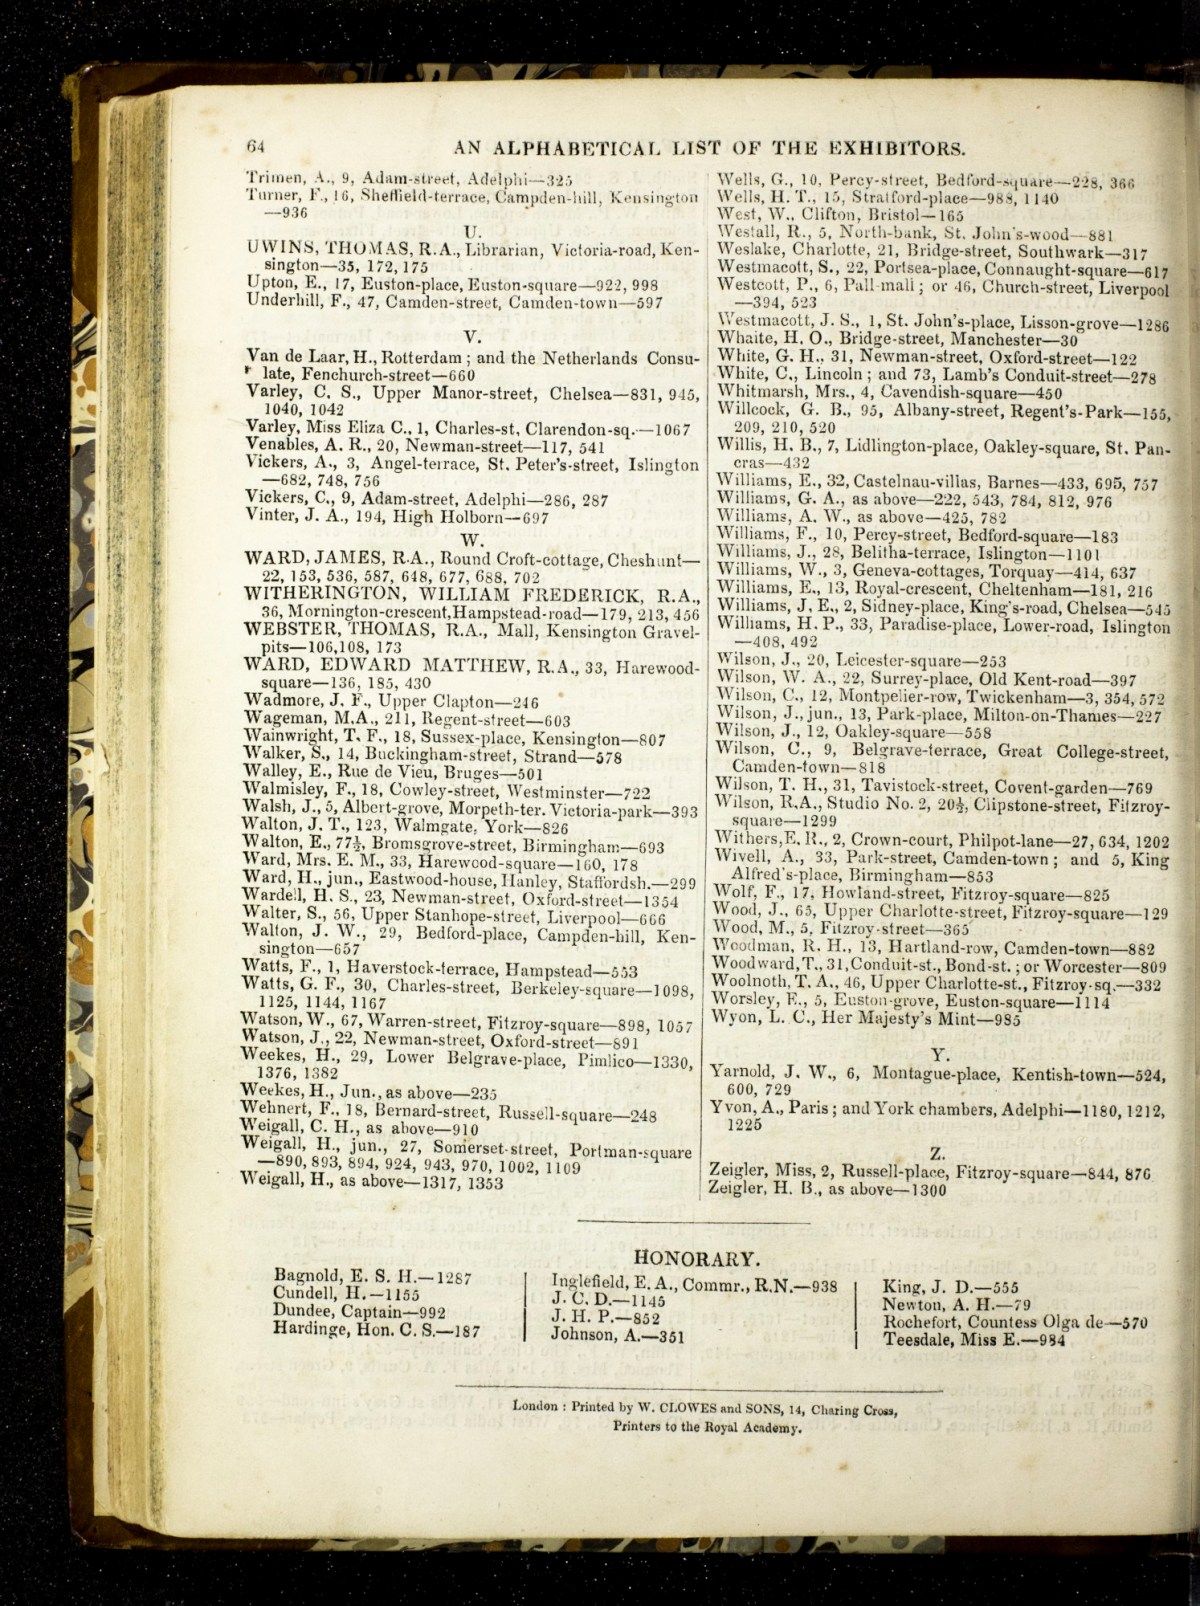 64
AN ALPHABETICAL LIST OF THE EXHIBITORS.
Trimen, A., 9, Adam-street, Adelphi—325
Turner, F., 16, Sheffield-terrace, Campden-hill, Kensington
—936
U.
UWINS, THOMAS, R.A., Librarian, Victoria-road, Ken-
sington—35, 172, 175
Upton, E., 17, Euston-place, Euston-square—922, 998
Underhill, F., 47, Camden-street, Camden-town—597
V.
Van de Laar, H., Rotterdam ; and the Netherlands Consu-
late, Fenchurch-street—660
Varley, C. S., Upper Manor-street, Chelsea—831, 945,
1040, 1042
Varley, Miss Eliza C., 1, Charles-st, Clarendon-sq.—1067
Venables, A. R., 20, Newman-street—117, 541
Vickers, A., 3, Angel-terrace, St. Peter's-street, Islington
—682, 748, 756
Vickers, C., 9, Adam-street, Adelphi—286, 287
Vinter, J. A., 194, High Holborn—697
W.
WARD, JAMES, R.A., Round Croft-cottage, Cheshunt—
22, 153, 536, 587, 648, 677, 688, 702
WITHERINGTON, WILLIAM FREDERICK, R.A.,
36, Mornington-crescent, Hampstead-road—179, 213, 456
WEBSTER, THOMAS, R.A., Mall, Kensington Gravel-
pits—106, 108, 173
WARD, EDWARD MATTHEW, R.A., 33, Harewood-
square—136, 185, 430
Wadmore, J. F., Upper Clapton—246
Wageman, M.A., 211, Regent-street—603
Wainwright, T. F., 18, Sussex-place, Kensington—807
Walker, S., 14, Buckingham-street, Strand—578
Walley, E., Rue de Vieu, Bruges—501
Walmisley, F., 18, Cowley-street, Westminster—722
Walsh, J., 5, Albert-grove, Morpeth-ter. Victoria-park—393
Walton, J. T., 123, Walmgate, York—826
Walton, E., 77½, Bromsgrove-street, Birmingham—693
Ward, Mrs. E. M., 33, Harewood-square—160, 178
Ward, H., jun., Eastwood-house, Hanley, Staffordsh.—299
Wardell, H. S., 23, Newman-street, Oxford-street—1354
Walter, S., 56, Upper Stanhope-street, Liverpool—666
Walton, J. W., 29, Bedford-place, Campden-hill, Ken-
sington—657
Watts, F., 1, Haverstock-terrace, Hampstead—553
Watts, G. F., 30, Charles-street, Berkeley-square—1098,
1125, 1144, 1167
Watson, W., 67, Warren-street, Fitzroy-square—898, 1057
Watson, J., 22, Newman-street, Oxford-street—891
Weekes, H., 29, Lower Belgrave-place, Pimlico—1330,
1376, 1382
Weekes, H., Jun., as above—235
Wehnert, F., 18, Bernard-street, Russell-square—248
Weigall, C. H., as above—910
Weigall, H., jun., 27, Somerset-street, Portman-square
—890, 893, 894, 924, 943, 970, 1002, 1109
Weigall, H., as above—1317, 1353
Wells, G., 10, Percy-street, Bedford-square—228, 366
Wells, H. T., 15, Stratford-place—988, 1140
West, W., Clifton, Bristol—165
Westall, R., 5, North-bank, St. John's-wood—881
Weslake, Charlotte, 21, Bridge-street, Southwark—317
Westmacott, S., 22, Portsea-place, Connaught-square—617
Westcott, P., 6, Pall-mall ; or 46, Church-street, Liverpool
—394, 523
Westmacott, J. S., 1, St. John's-place, Lisson-grove—1286
Whaite, H. O., Bridge-street, Manchester—30
White, G. H., 31, Newman-street, Oxford-street—122
White, C., Lincoln ; and 73, Lamb's Conduit-street—278
Whitmarsh, Mrs., 4, Cavendish-square—450
Willcock, G. B., 95, Albany-street, Regent's-Park—155,
209, 210, 520
Willis, H. B., 7, Lidlington-place, Oakley-square, St. Pan-
cras—432
Williams, E., 32, Castelnau-villas, Barnes—433, 695, 757
Williams, G. A., as above—222, 543, 784, 812, 976
Williams, A. W., as above—425, 782
Williams, F., 10, Percy-street, Bedford-square—183
Williams, J., 28, Belitha-terrace, Islington—1101
Williams, W., 3, Geneva-cottages, Torquay—414, 637
Williams, E., 13, Royal-crescent, Cheltenham—181, 216
Williams, J. E., 2, Sidney-place, King's-road, Chelsea—545
Williams, H. P., 33, Paradise-place, Lower-road, Islington
—408, 492
Wilson, J., 20, Leicester-square—253
Wilson, W. A., 22, Surrey-place, Old Kent-road—397
Wilson, C., 12, Montpelier-row, Twickenham—3, 354, 572
Wilson, J., jun., 13, Park-place, Milton-on-Thames—227
Wilson, J., 12, Oakley-square—558
Wilson, C., 9, Belgrave-terrace, Great College-street,
Camden-town—818
Wilson, T. H., 31, Tavistock-street, Covent-garden—769
Wilson, R.A., Studio No. 2, 20½, Clipstone-street, Fitzroy-
square—1299
Withers, E. R., 2, Crown-court, Philpot-lane—27, 634, 1202
Wivell, A., 33, Park-street, Camden-town ; and 5, King
Alfred's-place, Birmingham—853
Wolf, F., 17, Howland-street, Fitzroy-square—825
Wood, J., 65, Upper Charlotte-street, Fitzroy-square—129
Wood, M., 5, Fitzroy-street—365
Woodman, R. H., 13, Hartland-row, Camden-town—882
Woodward, T., 31, Conduit-st., Bond-st. ; or Worcester—809
Woolnoth, T. A., 46, Upper Charlotte-st., Fitzroy-sq.—332
Worsley, E., 5, Euston-grove, Euston-square—1114
Wyon, L. C., Her Majesty's Mint—985
Y.
Yarnold, J. W., 6, Montague-place, Kentish-town—524,
600, 729
Yvon, A., Paris ; and York chambers, Adelphi—1180, 1212,
1225
Z.
Zeigler, Miss, 2, Russell-place, Fitzroy-square—844, 876
Zeigler, H. B., as above—1300
HONORARY.
Bagnold, E. S. H.—1287
Cundell, H.—1155
Dundee, Captain—992
Hardinge, Hon. C. S.—187
Inglefield, E. A., Commr., R.N.—938
J. C. D.—1145
J. H. P.—852
Johnson, A.—351
King, J. D.—555
Newton, A. H.—79
Rochefort, Countess Olga de—570
Teesdale, Miss E.—984
London : Printed by W. CLOWES and SONS, 14, Charing Cross,
Printers to the Royal Academy.